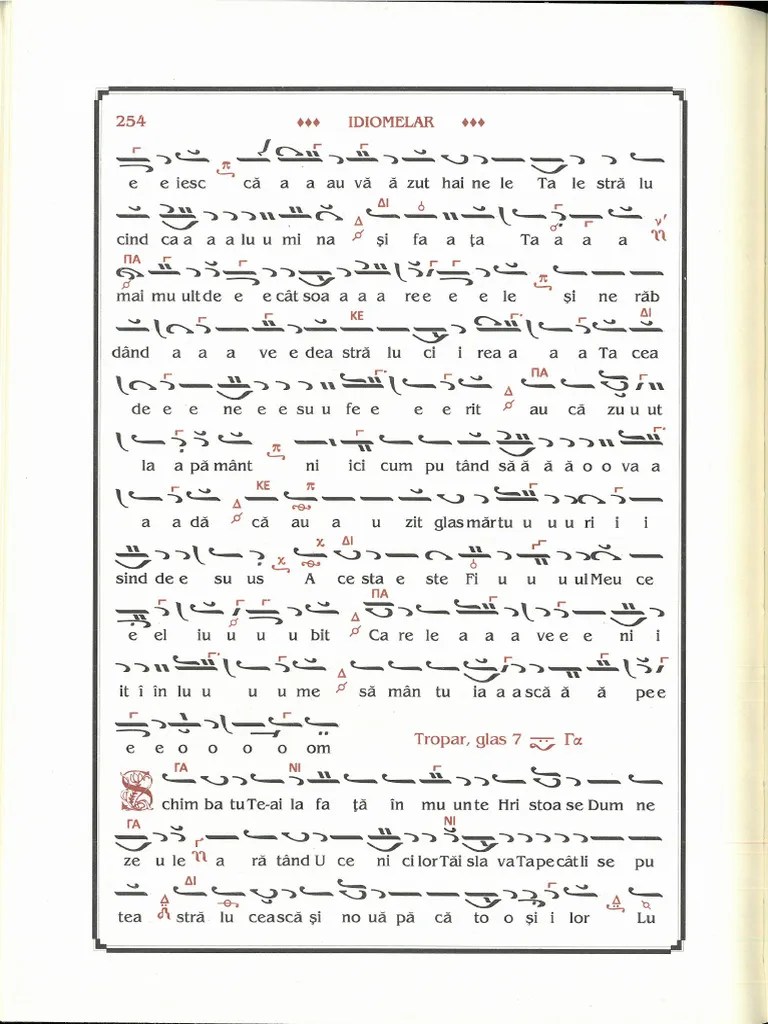 254 ♦♦♦ IDIOMELAR ♦♦♦
e e iesc că a a au vă ă zut hai ne le Ta le stră lu
ΔΙ
cind ca a a a lu u mi na și fa a ța Ta a a a
ΠΑ
mai mu ult de e e cât soa a a a re e e e le și ne răb
ΚΕ ΔΙ
dând a a a ve e dea stră lu ci i rea a a a Ta cea
ΠΑ
de e e ne e e su u fe e e e rit au că zu u ut
la a pă mânt ni ici cum pu tând să ă ă ă ă o o va a
ΚΕ
a a dă că au a u zit glas măr tu u u u ri i i
ΔΙ
sind de e su us A ce sta e ste Fi u u u ul Meu ce
ΠΑ
e el iu u u u bit Ca re le a a a ve e e ni i
it î în lu u u u me să mân tu ia a ască ă ă pe e
e e o o o o om Tropar, glas 7 Γα
ΓΑ ΝΙ
Schim ba tu Te-ai la fa ță în mu un te Hri stoa se Dum ne
ΓΑ ΝΙ
ze u le a ră tând U ce ni ci lor Tăi sla va Ta pe cât li se pu
ΔΙ
tea stră lu cească și no uă pă că to o și i lor Lu